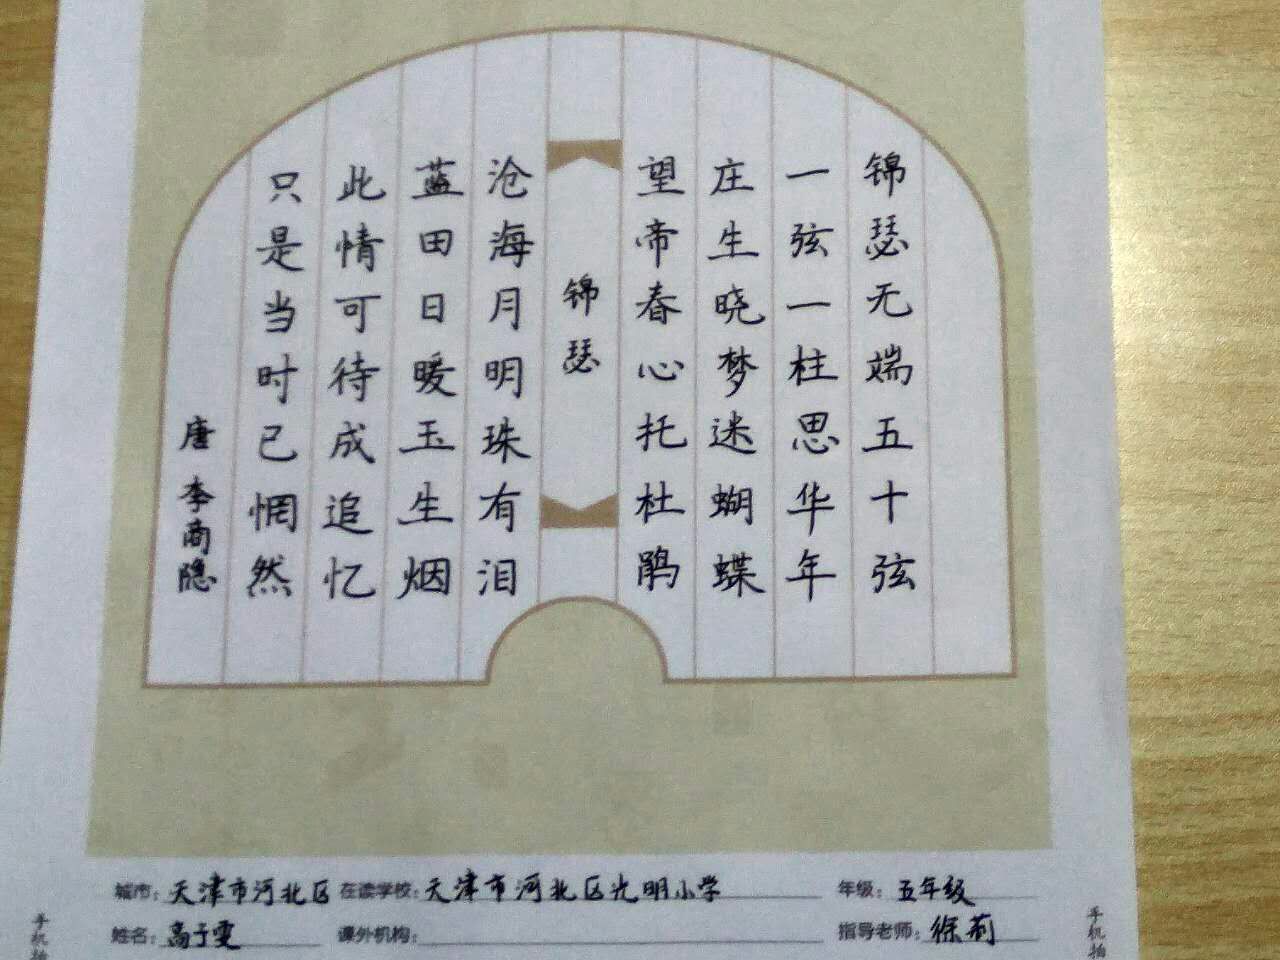 锦瑟无端五十弦
一弦一柱思华年
庄生晓梦迷蝴蝶
望帝春心托杜鹃
锦瑟
沧海月明珠有泪
蓝田日暖玉生烟
此情可待成追忆
只是当时已惘然
唐 李商隐
城市：天津市河北区 在读学校：天津市河北区光明小学 年级：五年级
姓名：高子雯 课外机构： 指导老师：徐莉
手机拍
手机拍